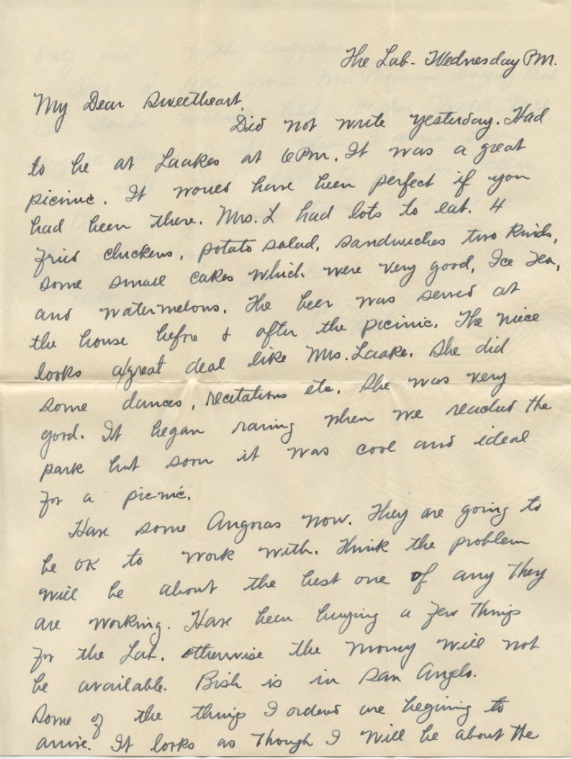 The Lab - Wednesday PM.
My Dear Sweetheart,
Did not write yesterday. Had
to be at Laakes at 6 PM. It was a great
picinic. It would have been perfect if you
had been there. Mrs. L had lots to eat. 4
fried chickens, potato salad, sandwiches two kinds,
some small cakes which were very good, Ice Tea,
and watermelons. The beer was served at
the house before & after the picinic. The niece
looks a great deal like Mrs. Laake. She did
some dances, recitations etc. She was very
good. It began raning when we reached the
park but soon it was cool and ideal
for a picnic.
Have some Angoras now. They are going to
be OK to work with. Think the problem
will be about the best one of any they
are working. Have been buying a few things
for the Lab. otherwise the money will not
be available. Bish is in San Angelo.
Some of the things I ordered are begining to
arrive. It looks as though I will be about the